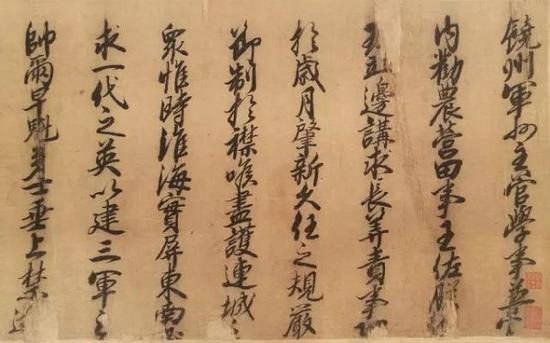 饒州軍州主管學事兼管
内勸農營田事王佐朕
邊講求長筭責事
於歲月肇新久任之規嚴
節制於襟喉盡護連城之
衆惟時淮海實屏東南
求一代之英以建三軍之
帥爾早魁多士垂上禁